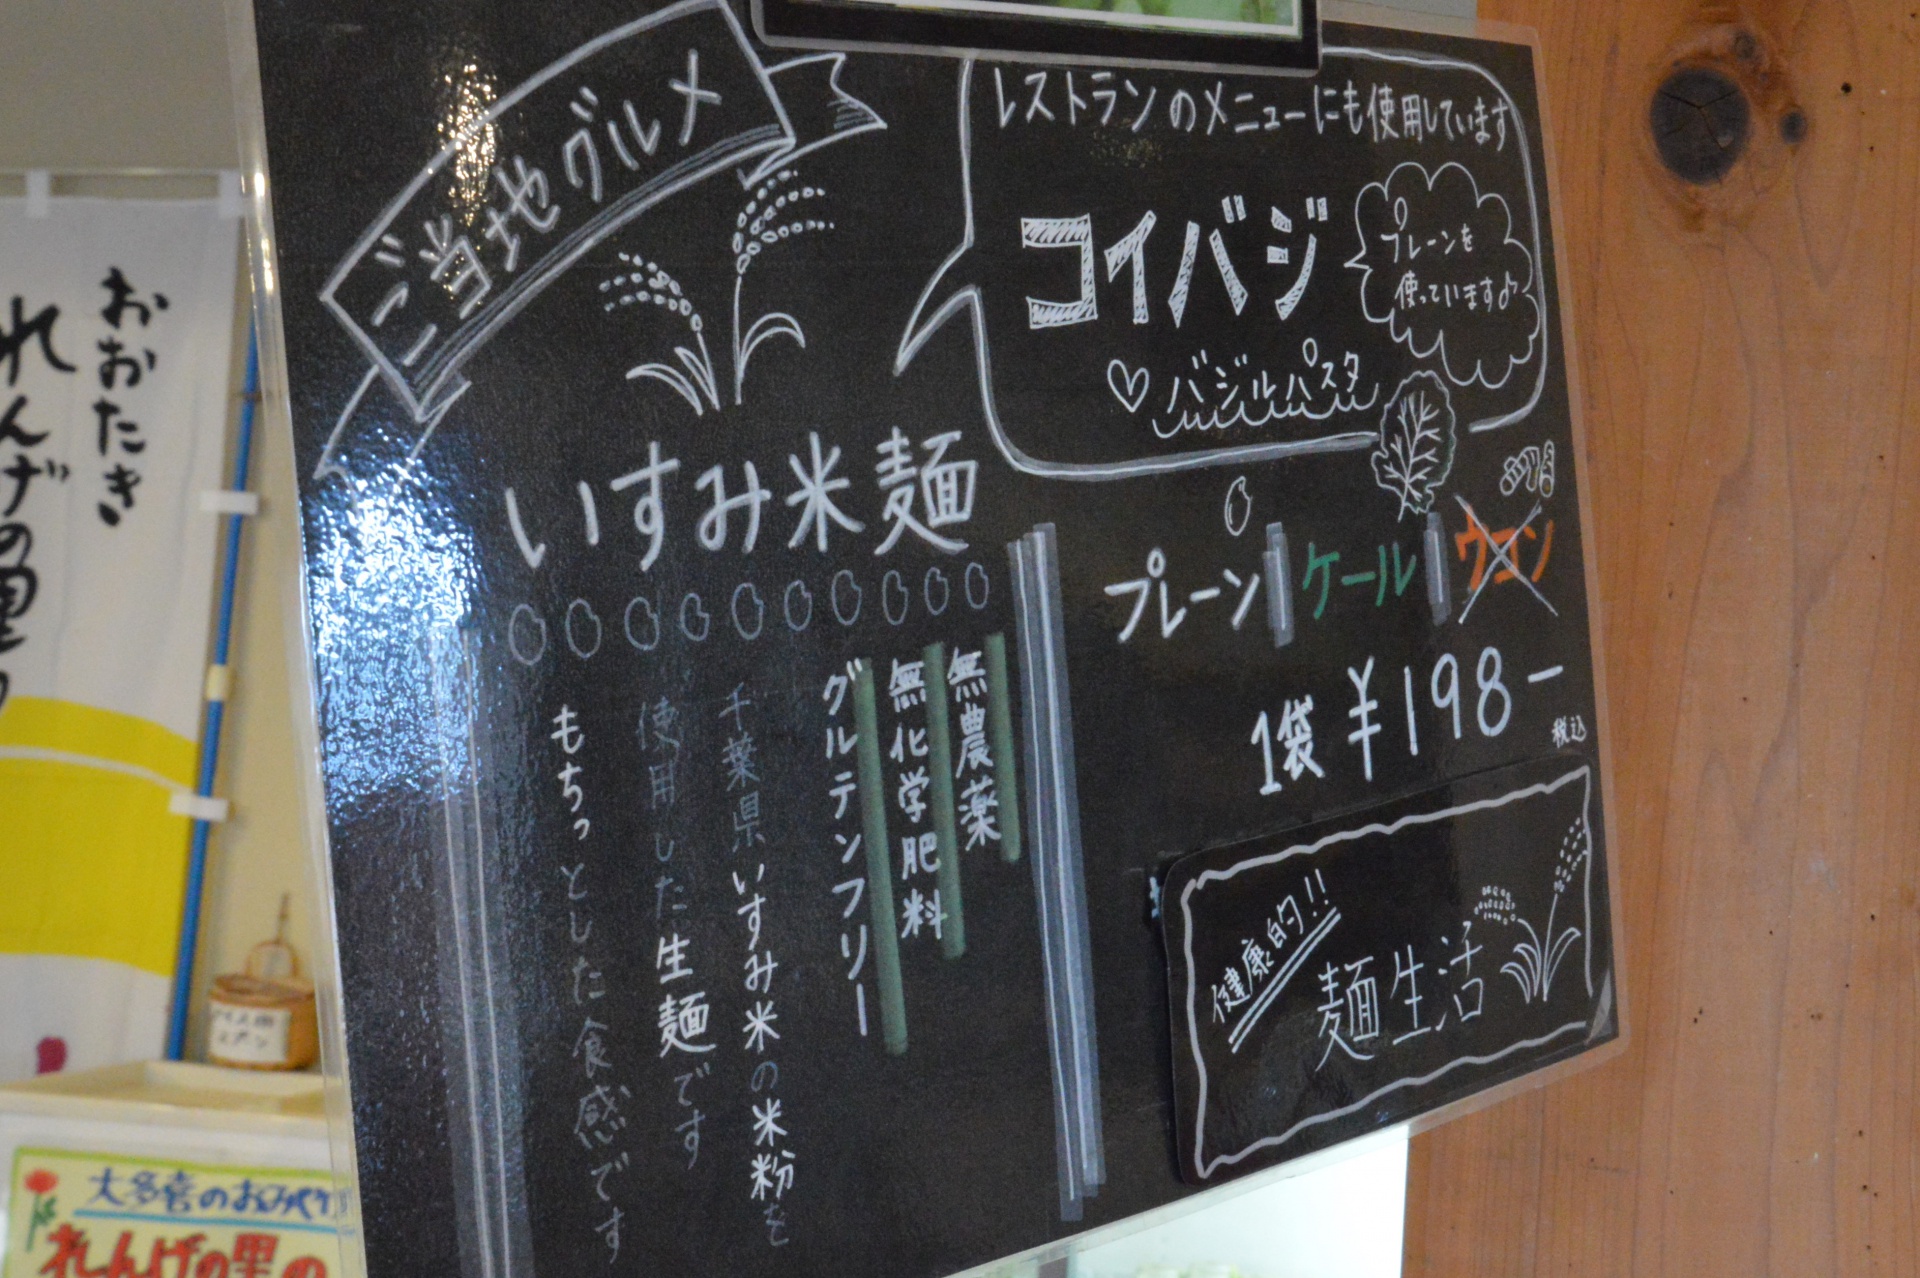 ご当地グルメ
レストランのメニューにも使用しています
コイバジ
プレーンを
使っています♪
♡バジルパスタ
いすみ米麺
プレーン
ケール
ウコン
1袋 ¥198-
税込
無農薬
無化学肥料
グルテンフリー
千葉県いすみ米の米粉を
使用した生麺です
もちっとした食感です
健康的!!
麺生活
おおたき
れんげの里
大多喜のおみやげ
れんげの里の